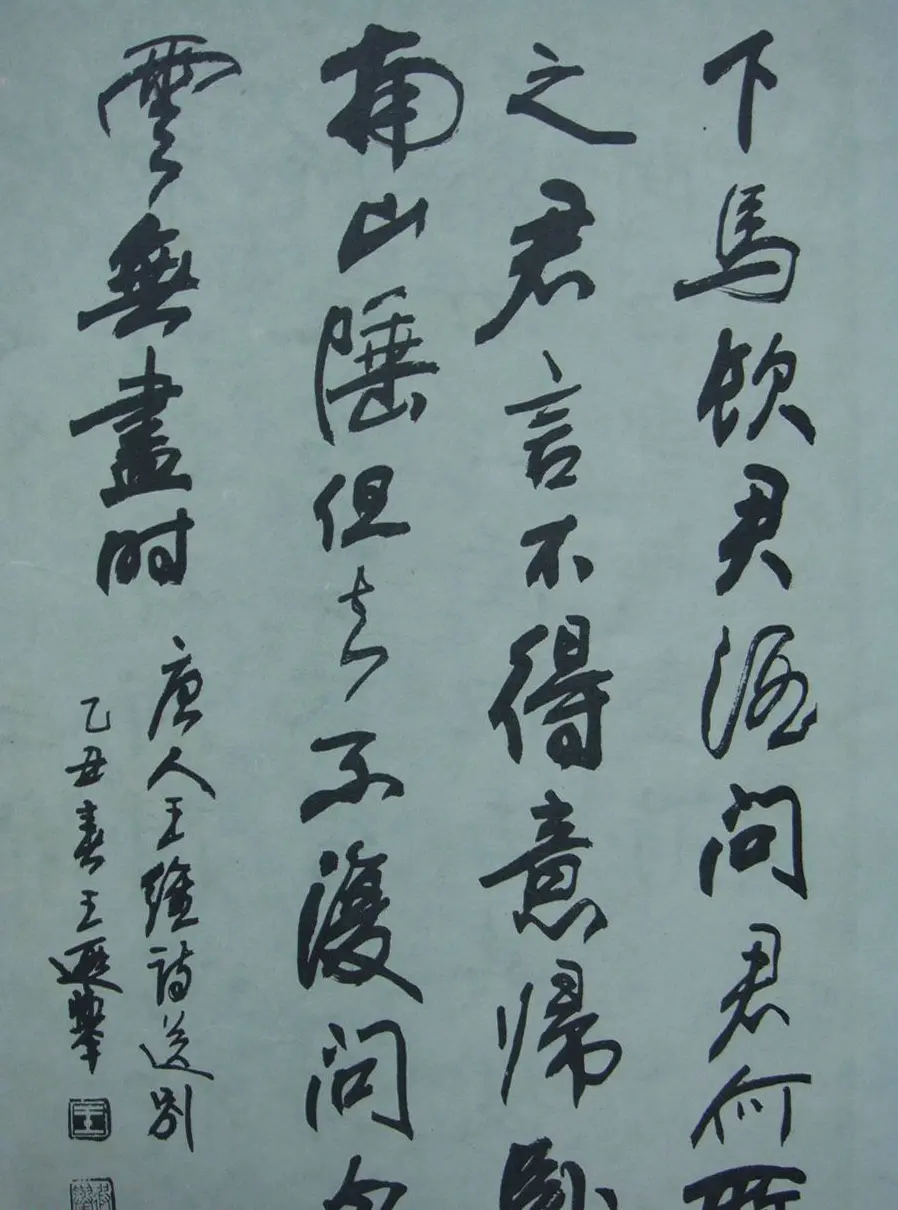 下馬飲君酒問君何所
之君言不得意歸臥
南山陲但去不復問白
雲無盡時
唐人王維詩送別
乙丑春王遐舉